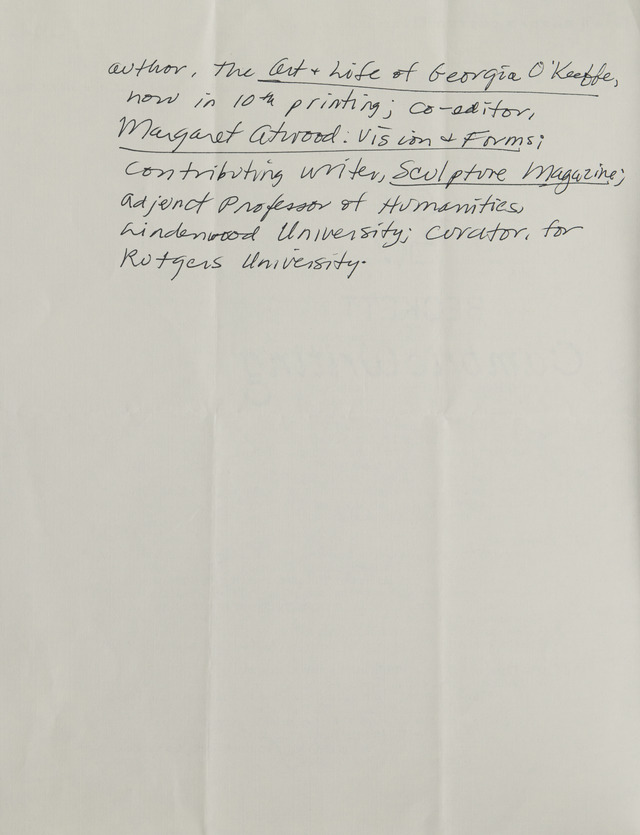 author, The Art + Life of Georgia O'Keeffe,
now in 10th printing; co-editor,
Margaret Atwood: Vision + Forms;
contributing writer, Sculpture Magazine;
adjunct Professor of Humanities,
Lindenwood University; curator, for
Rutgers University.